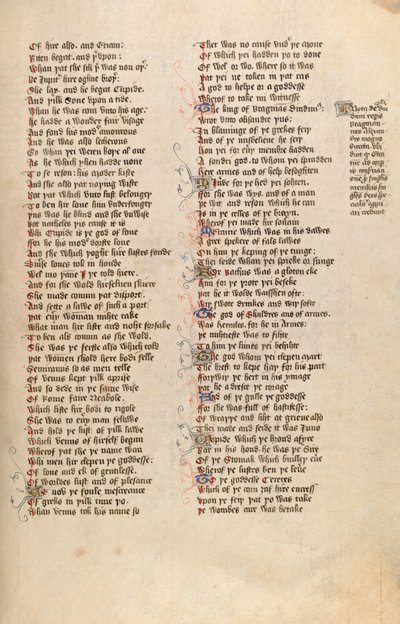 Of hire also. and Enuon:
Riten begat. and þupon:
Whan þat she sih þer was non oþer.
She lay. and he begat Cupide.
And þilk Sone upon a tide.
Whan he was com unto his age:
he hadde a wonder fair visage
And fond his mod amourous
And he was also lecherous
So whan þei weren boþe al one
As he which yhen hadde none
To se reson: his moder kiste
And she also þat noþing wiste
Bot þat which unto lust belongeþ
To ben hire love him underfongeþ
þus was he blind and she unwise
Bot natheles þis cause it is
Why Cupide is þe god of love
ffor he his moder dorste love
And she which þoght hire lustes fonde
Diverse loves tok in honde
Wel mo þan I þe told hiere.
And for she wold hirselven skiere
She made comun þat disport.
And sette a lawe of such a port
þat every woman mihte take
What man hire liste and noght forsake
To ben als comun as she wold.
She was þe ferste also which told
þat women shold here bodi selle
Semiramis so as men telle
Of Venus kept þilk aprise
And so dede in þe same wise
Of Rome faire Neabole.
Which liste hir bodi to rigole
She was to every man felawe
And hild þe lust of þilk lawe
Which Venus of hirself began
Wherof þat she þe name wan
Why men hire clepen þe goddesse:
Of love and ek of gentilesse.
Of worldes lust and of plesance
Se now þe foule mescreance
Of greks in þilk time þo.
Whan Venus tok hire name so
Ther was no cause under þe mone
Of which þei hadden þo to done
Of wel or wo. where so it was
þat þei ne token in þat cas
A god to helpe or a goddesse
Wherof to take mi witnesse
The king of Bragmans Dindimus
Wrot unto Alisandre þus:
In blaminge of þe grekes feiþ
And of þe misbelieve he seiþ
how þei for every membre hadden
A sondri god. to whom þei spradden
here armes and of help besoghten
Minerve for þe hed þei sohten.
ffor she was wys. and of a man
þe wit and reson which he can
Is in þe celles of þe brayn.
Wherof þei made hir soverain
Mercurie which was in his dawes
A gret spekere of fals lawes
On him þe keping of þe tunge:
Thei leide whan þei speke or sunge
For Bachus was a gloton eke
him for þe þrote þei beseke
þat he it wolde wasshen ofte:
Wiþ swote drinkes and wiþ softe
The god of shuldres and of armes:
Was hercules. for he in armes:
þe mihtieste was to fihte
To him þe limes þei behihte
The god whom þei clepen mart
The brest to kepe haþ for his part
fforþwiþ þe hert in his ymage
þat he adresce þe corage
And of þe galle þe goddesse
ffor she was full of hastifesse:
Of wraþþe and liht at grieve also
Thei made and seide it was Juno
Cupide which þe brond afyre
Bar in his hond. he was þe Sire
Of þe Stomak which builleþ ever
Wherof þe lustes ben þe levere
To þe goddesse Cereres
Which of þe corn ȝaf hire encress
Upon þe feiþ þat þo was take
þe wombes cure was betake